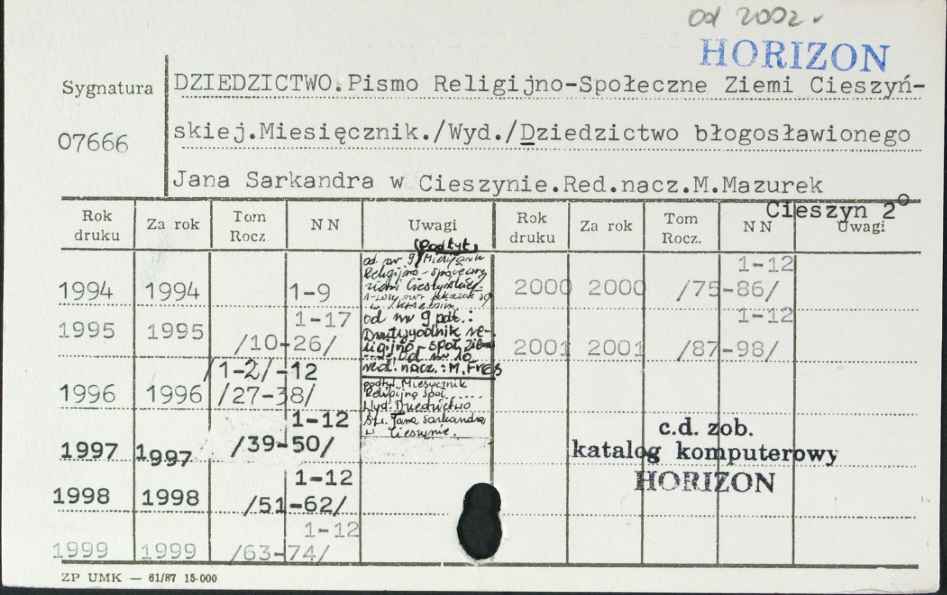 od 2002.
HORIZON
Sygnatura
07666
DZIEDZICTWO.Pismo Religijno-Społeczne Ziemi Cieszyń-
skiej.Miesięcznik./Wyd./Dziedzictwo błogosławionego
Jana Sarkandra w Cieszynie.Red.nacz.M.Mazurek
Cieszyn 2°
Rok druku Za rok Tom Rocz NN Uwagi Rok druku Za rok Tom Rocz. NN Uwagi
(Podtyt)
od nr 9 Miesięcznik
Religijno-społeczny
ziemi Cieszyńskiej.
1994 1994 1-9
2000 2000 /75-86/ 1-12
od nr 9 pdt.:
Dwutygodnik re-
ligijno-społ. ziemi
od nr 10
red. nacz.: M. Fres
1995 1995 /10-26/ 1-17
2001 2001 /87-98/ 1-12
1996 1996 /1-2/-12
/27-38/
podtyt. Miesięcznik
Religijno społ.
Wyd. Dziedzictwo
bł. Jana Sarkandra
w Cieszynie.
1997 1997 /39-50/ 1-12
1998 1998 /51-62/ 1-12
1999 1999 /63-74/ 1-12
c.d. zob.
katalog komputerowy
HORIZON
ZP UMK — 61/87 15-000